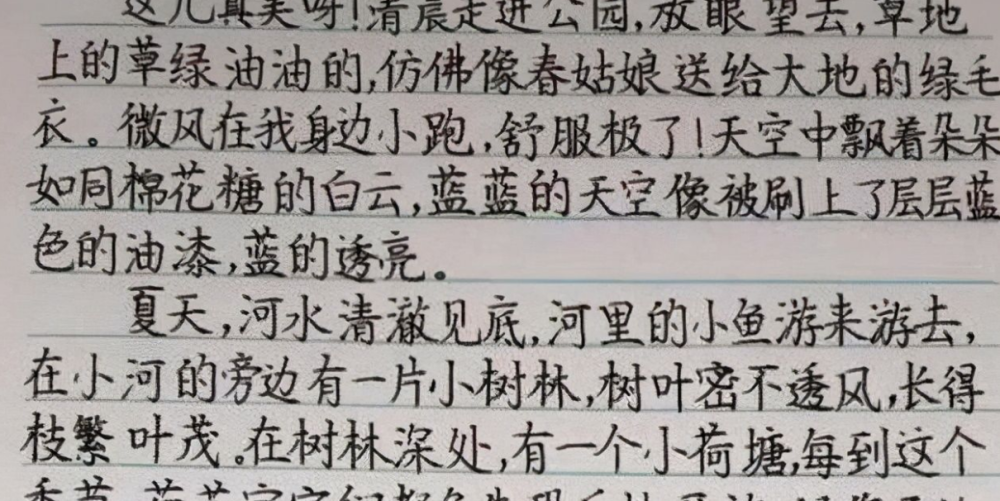 这儿真美呀!清晨走进公园,放眼望去,草地
上的草绿油油的,仿佛像春姑娘送给大地的绿毛
衣。微风在我身边小跑,舒服极了!天空中飘着朵朵
如同棉花糖的白云,蓝蓝的天空像被刷上了层层蓝
色的油漆,蓝的透亮。
夏天,河水清澈见底,河里的小鱼游来游去,
在小河的旁边有一片小树林,树叶密不透风,长得
枝繁叶茂。在树林深处,有一个小荷塘,每到这个